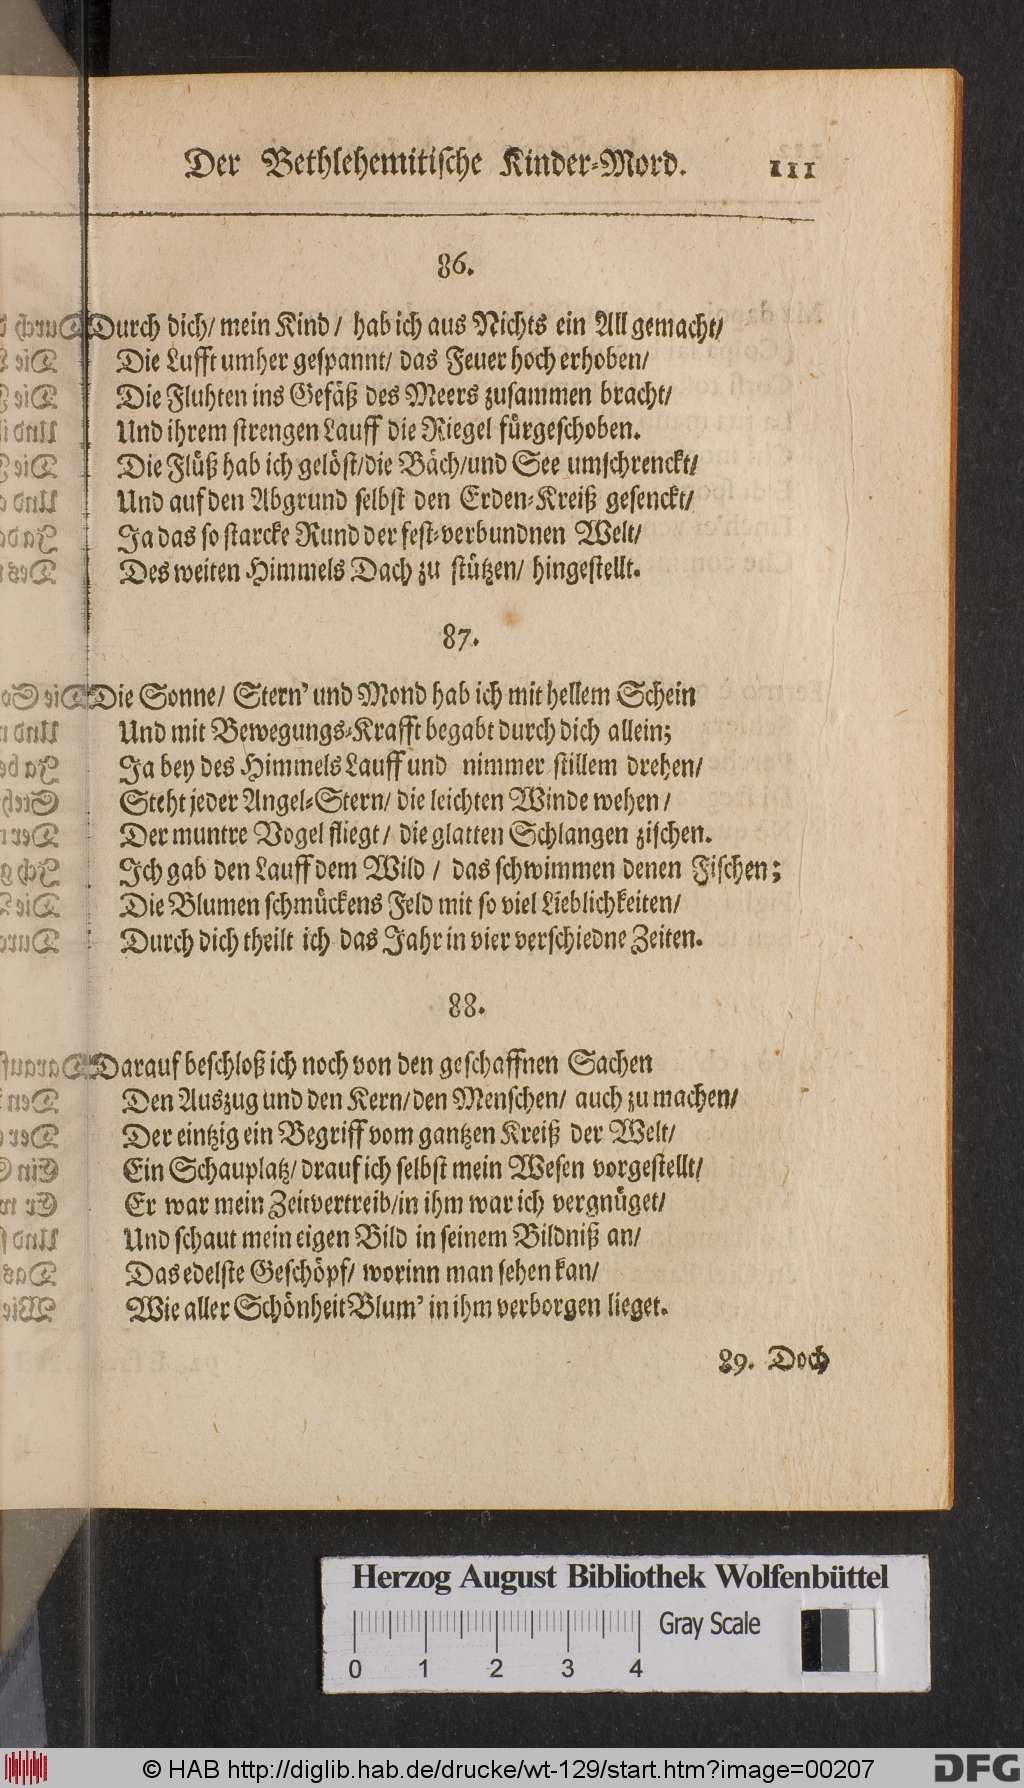 Der Bethlehemitische Kinder-Mord. 111
86.
Durch dich/ mein Kind/ hab ich aus Nichts ein All gemacht/
Die Lufft umher gespannt/ das Feuer hoch erhoben/
Die Fluhten ins Gefäß des Meers zusammen bracht/
Und ihrem strengen Lauff die Riegel fürgeschoben.
Die Flüß hab ich gelöst/die Bäch/und See umschrenckt/
Und auf den Abgrund selbst den Erden-Kreiß gesenckt/
Ja das so starcke Rund der fest-verbundnen Welt/
Des weiten Himmels Dach zu stützen/ hingestellt.
87.
Die Sonne/ Stern' und Mond hab ich mit hellem Schein
Und mit Bewegungs-Krafft begabt durch dich allein;
Ja bey des Himmels Lauff und nimmer stillem drehen/
Steht jeder Angel-Stern/ die leichten Winde wehen/
Der muntre Vogel fliegt/ die glatten Schlangen zischen.
Ich gab den Lauff dem Wild/ das schwimmen denen Fischen;
Die Blumen schmückens Feld mit so viel Lieblichkeiten/
Durch dich theilt ich das Jahr in vier verschiedne Zeiten.
88.
Darauf beschloß ich noch von den geschaffnen Sachen
Den Auszug und den Kern/den Menschen/ auch zu machen/
Der eintzig ein Begriff vom gantzen Kreiß der Welt/
Ein Schauplatz/ drauf ich selbst mein Wesen vorgestellt/
Er war mein Zeitvertreib/in ihm war ich vergnüget/
Und schaut mein eigen Bild in seinem Bildniß an/
Das edelste Geschöpf/ worinn man sehen kan/
Wie aller Schönheit Blum' in ihm verborgen lieget.
89. Doch
Herzog August Bibliothek Wolfenbüttel
Gray Scale
0 1 2 3 4
© HAB http://diglib.hab.de/drucke/wt-129/start.htm?image=00207
DFG